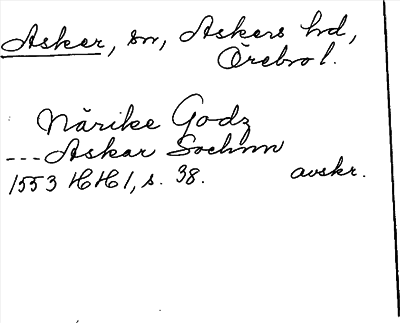 Asker, sn, Askers hd,
Örebro l.
Närike Godz
---Askar Sochnn
1553 HH 1, s. 38. avskr.